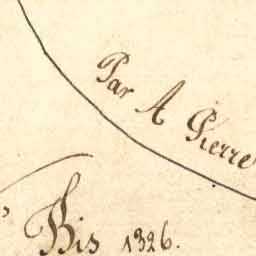 Par A Pierre
Bis 1326.